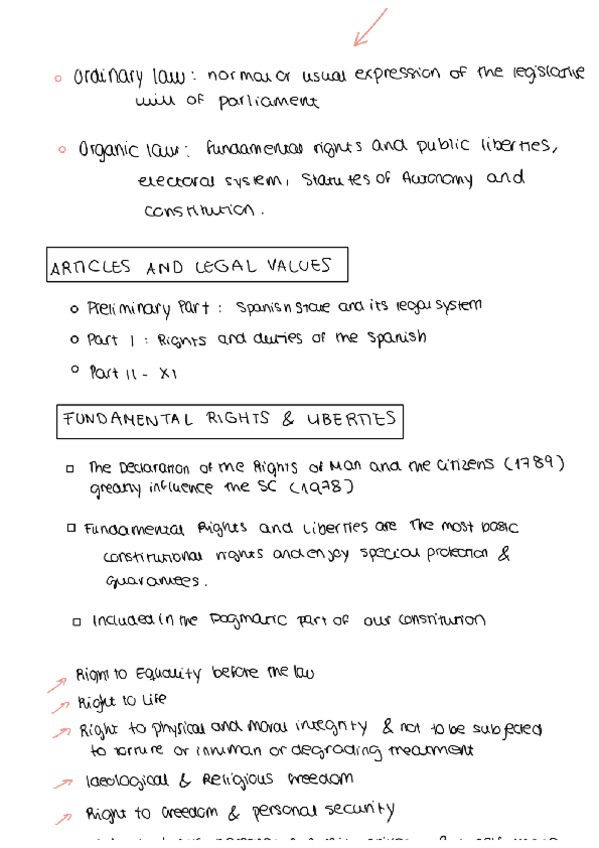 Ordinary law: normal or usual expression of the legislative
will of parliament
Organic law: fundamental rights and public liberties,
electoral system, Statutes of Autonomy and
constitution.
ARTICLES AND LEGAL VALUES
Preliminary Part: Spanish State and its legal system
Part I: Rights and duties of the Spanish
Part II - XI
FUNDAMENTAL RIGHTS & LIBERTIES
The Declaration of the Rights of Man and the Citizens (1789)
greatly influence the SC (1978)
Fundamental Rights and Liberties are the most basic
constitutional rights and enjoy special protection &
guarantees.
Included in the Dogmatic part of our constitution
Right to Equality before the law
Right to Life
Right to physical and moral integrity & not to be subjected
to torture or inhuman or degrading treatment
Ideological & Religious freedom
Right to freedom & personal security